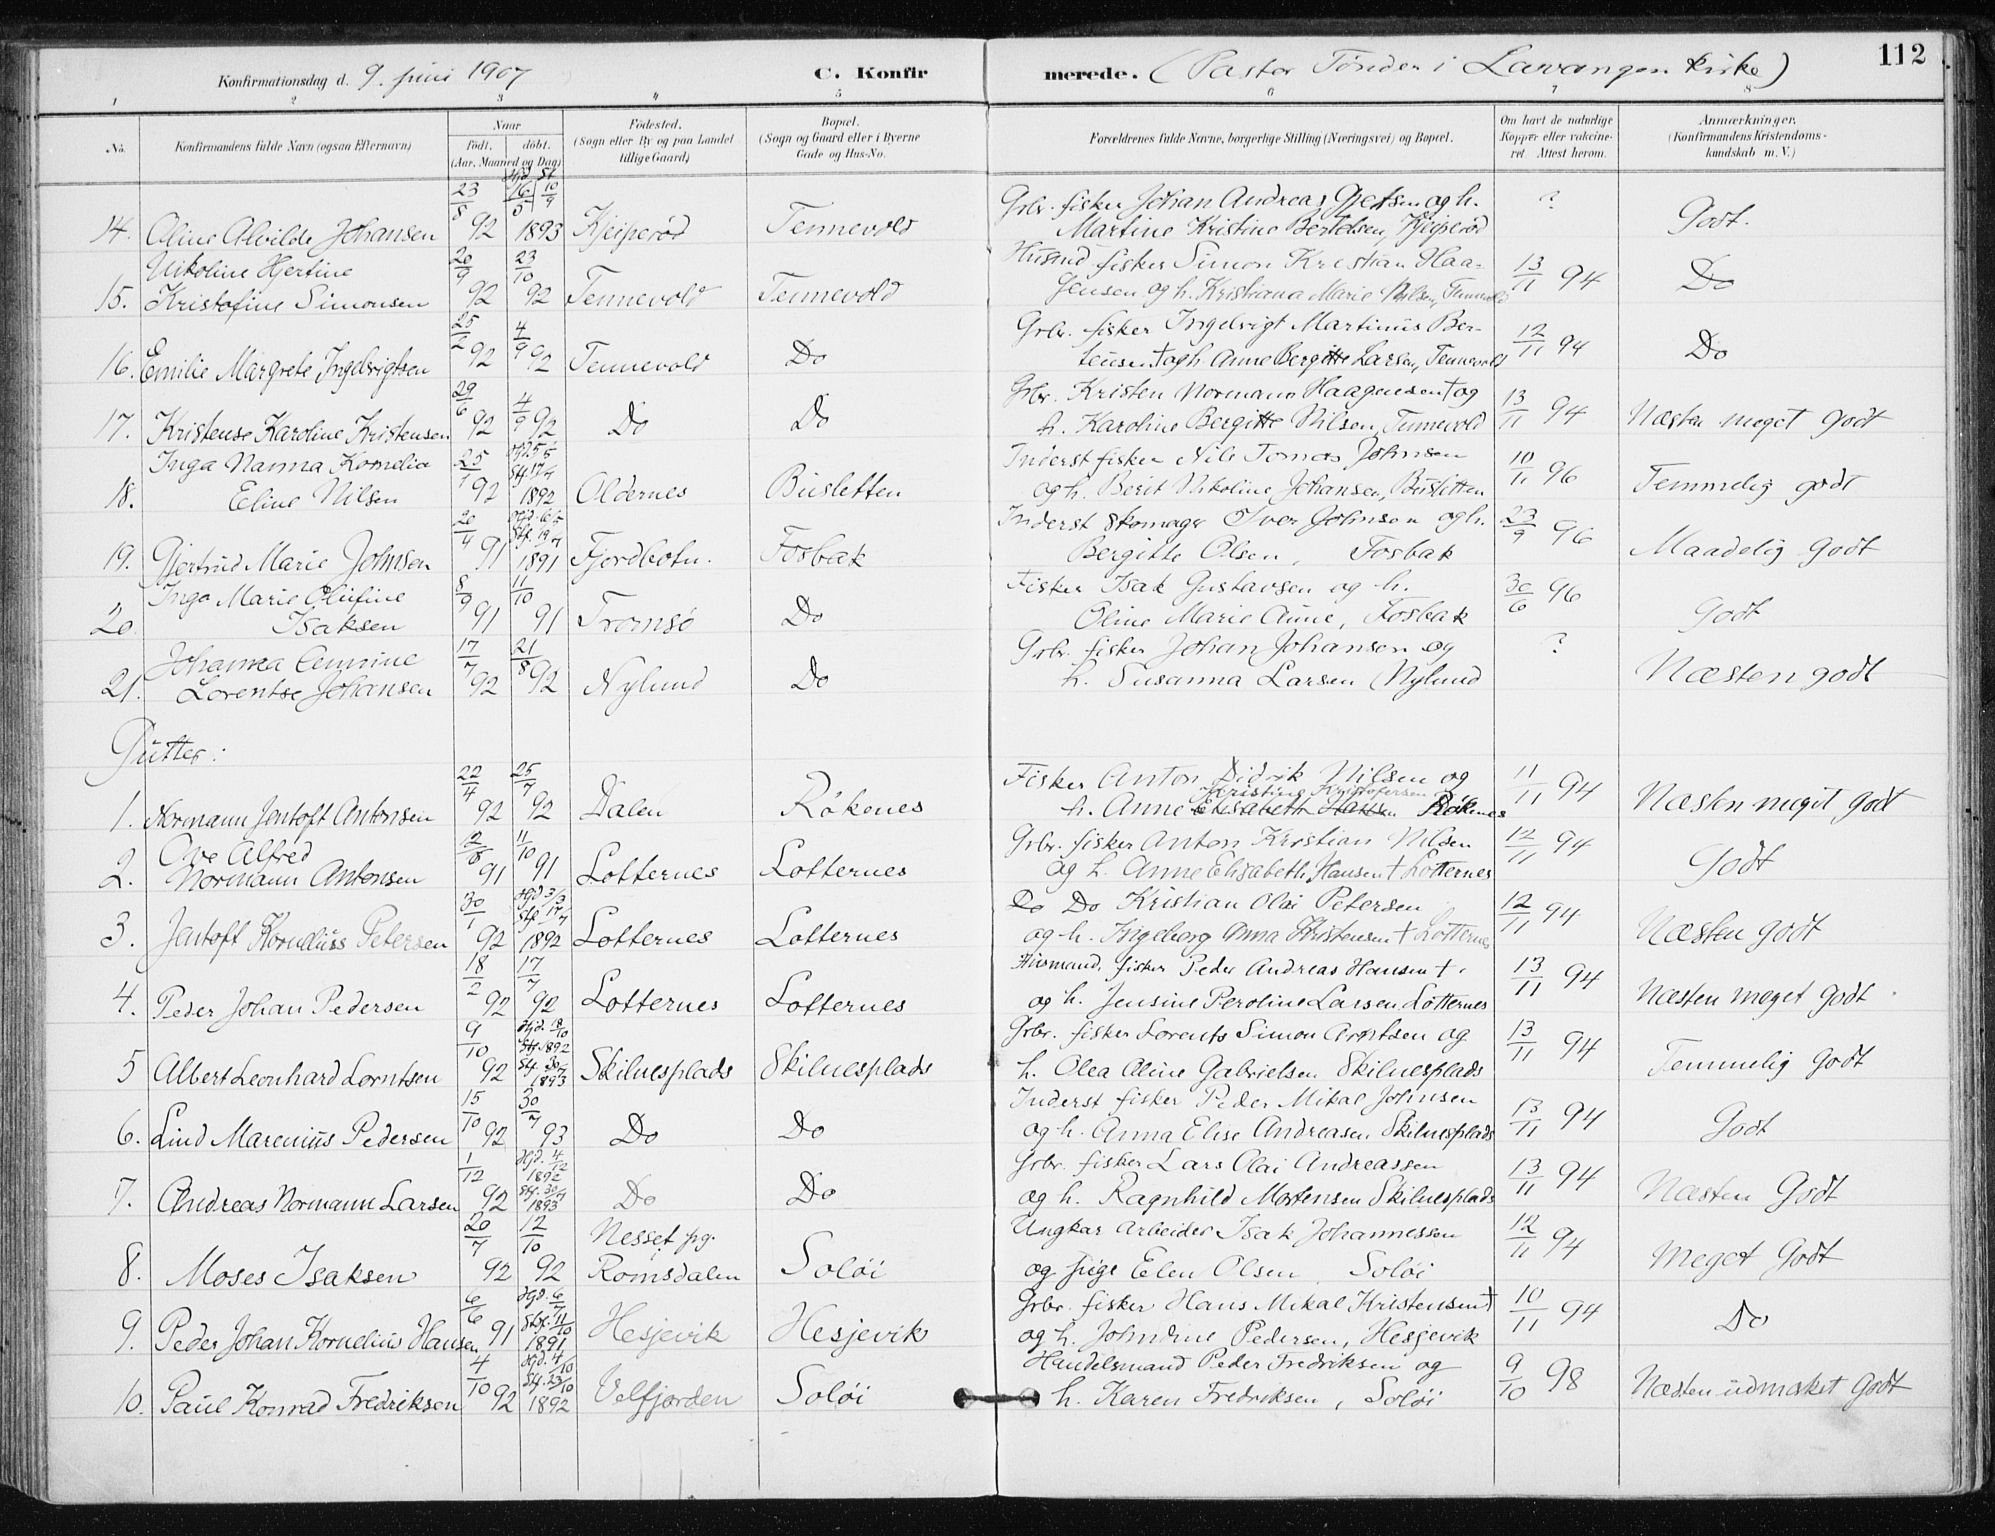 112
Konfirmationsdag d. 9. juni 1907 C. Konfirmerede. (Pastor Tönder i Lavangen kirke)
1 2 3 4 5 6 7 8
No. Konfirmandens fulde Navn (ogsaa Efternavn) Naar födt. döbt. (Aar, Maaned og Dag) Födested. (Sogn eller By og paa Landet tillige Gaard) Bopæl. (Sogn og Gaard eller i Byerne Gade og Hus-No. Forældrenes fulde Navne, borgerlige Stilling (Næringsvei) og Bopæl. Om havt de naturlige Kopper eller vaccineret Attest herom. Anmærkninger. (Konfirmandens Kristendomskundskab m. V.)
23/8 Hjd. 16/5 St 10/9 Grbr. fisker Johan Andreas og h. ?
14. Oline Alvilde Johansen 92 1893 Kjeiperød Tennevold Martine Kristine Bertelsen, Kjeiperød Godt.
Nikoline Hjertine 20/9 23/10 Husmd fisker Simon Kristian Haa- 13/11 94
15. Kristofine Simonsen 92 92 Tennevold Tennevold gensen og h. Kristiana Marie Nilsen, Tennevold Do
25/2 4/9 Grbr. fisker Ingebrigt Martinus Ber- 12/11 94
16. Emilie Margrete Ingebrigtsen 92 92 Tennevold Do tensen † og h. Anne Bergitte Larsen, Tennevold Do
29/6 4/9 Grbr. Kristen Normann Haagensen † og 13/11 94
17. Kristense Karoline Kristensen 92 92 Do Do h. Karoline Bergitte Nilsen, Tennevold Næsten meget godt
Inga Nanna Kornelia 25/1 Hjd 5/5 Stf 17/4 Inderst fisker Nils Tomas Johnsen 10/11 96
18. Eline Nilsen 92 1892 Oldernes Busletten og h. Berit Nikoline Johansen, Busletten Temmelig godt
20/4 Hjd. 6/5 Stf. 19/7 Inderst Skomager Iver Johnsen og h. 23/9 96
19. Gjertrud Marie Johnsen 91 1891 Fjordbotn. Fosbak Bergitte Olsen, Fosbak Maadelig godt
Inga Marie Olufine 8/9 11/10 Fisker Isak Gustavsen og h. 30/6 96
20 Isaksen 91 91 Tromsö Do Oline Marie Aune, Fosbak Godt
Johanna Annine 17/7 21/8 Grbr. fisker Johan Johansen og ?
21. Lorentse Johansen 92 92 Nylund Do h. Susanna Larsen Nylund Næsten godt
Gutter:
22/4 25/7 Fisker Anton Didrik Nilsen og 11/11 94
Kristine Kristofersen
1. Normann Jentoft Antonsen 92 92 Dalen Rökenes h. Anne Elisabeth Hansen Rökenes Næsten meget godt
Ove Alfred 12/5 11/10 Grbr. fisker Anton Kristian Nilsen 12/11 94
2. Normann Antonsen 91 91 Lotternes Lotternes og h. Anne Elisabeth Hansen † Lotternes Godt
30/1 Hjd 3/3 Stf 17/7 Do Do Kristian Olai Petersen 12/11 94
3. Jentoft Kornelius Petersen 92 1892 Lotternes Lotternes og h. Ingeborg Anna Kristensen † Lotternes Næsten godt
18/2 17/7 Husmand, fisker Peder Andreas Hansen † 13/11 94
4. Peder Johan Pedersen 92 92 Lotternes Lotternes og h. Jensine Peroline Larsen Lotternes Næsten meget godt
9/10 Hjd. 18/10 1892 Grbr. fisker Lorents Simon Arntsen og 13/11 94
5 Albert Leonhard Lorntsen 92 Stf. 30/7 1893 Skilnesplads Skilnesplads h. Olea Aline Gabrielsen Skilnesplads Temmelig godt
15/10 30/7 Inderst fisker Peder Mikal Johnsen 13/11 94
6. Lind Marenius Pedersen 92 93 Do Do og h. Anna Elise Andreasen Skilnesplads Godt
1/12 Hjd. 4/12 1892 Grbr. fisker Lars Olai Andreassen 13/11 94
7. Andreas Normann Larsen 92 Stf. 30/7 1893 Do Do og h. Ragnhild Mortensen Skilnesplads Næsten Godt
20/7 12/10 Nesset pg. Ungkar Arbeider Isak Johannessen 12/11 94
8. Moses Isaksen 92 92 Romsdalen Soløi og pige Elen Olsen, Soløi Meget Godt
6/6 Hjd. 6/7 Stf. 11/10 Grbr. fisker Hans Mikal Kristensen † 10/11 94
9. Peder Johan Kornelius Hansen 91 1891 Hesjevik Hesjevik og h. Johndine Pedersen, Hesjevik Do
4/10 Hjd. 4/10 Stf. 23/10 Handelsmand Peder Fredriksen og 9/10 98
10. Paul Konrad Fredriksen 92 1892 Velfjorden Soløi h. Karen Fredriksen, Soløi Næsten udmærket Godt